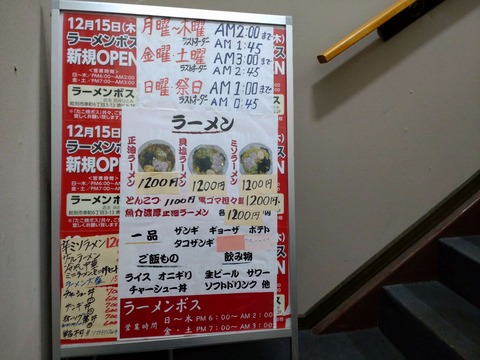 12月15日(木)
ラーメンボス
新規OPEN
<営業時間>
日〜木/PM6:00〜AM2:00
金・土/PM7:00〜AM3:00
ラーメンボス
12月15日(木)
ラーメンボス
新規OPEN
ラーメンボス
月曜〜木曜 AM2:00まで
ラストオーダー AM 1:45
金曜・土曜 AM3:00まで
ラストオーダー AM 2:45
日曜・祭日 AM1:00まで
ラストオーダー AM 0:45
ラーメン
正油ラーメン 1200円
貝塩ラーメン 1200円
ミソラーメン 1200円
とんこつ 1100円 黒ゴマ担々麺 1200円
魚介濃厚正油ラーメン 各1200円
一品 ザンギ ギョーザ ポテト
タコザンギ
ご飯もの
ライス オニギリ
チャーシュー丼
飲み物
生ビール サワー
ソフトドリンク 他
ラーメンボス
営業時間 日〜木・PM 6:00 〜 AM 2:00
金・土・PM 7:00 〜 AM 3:00
辛ミソラーメン